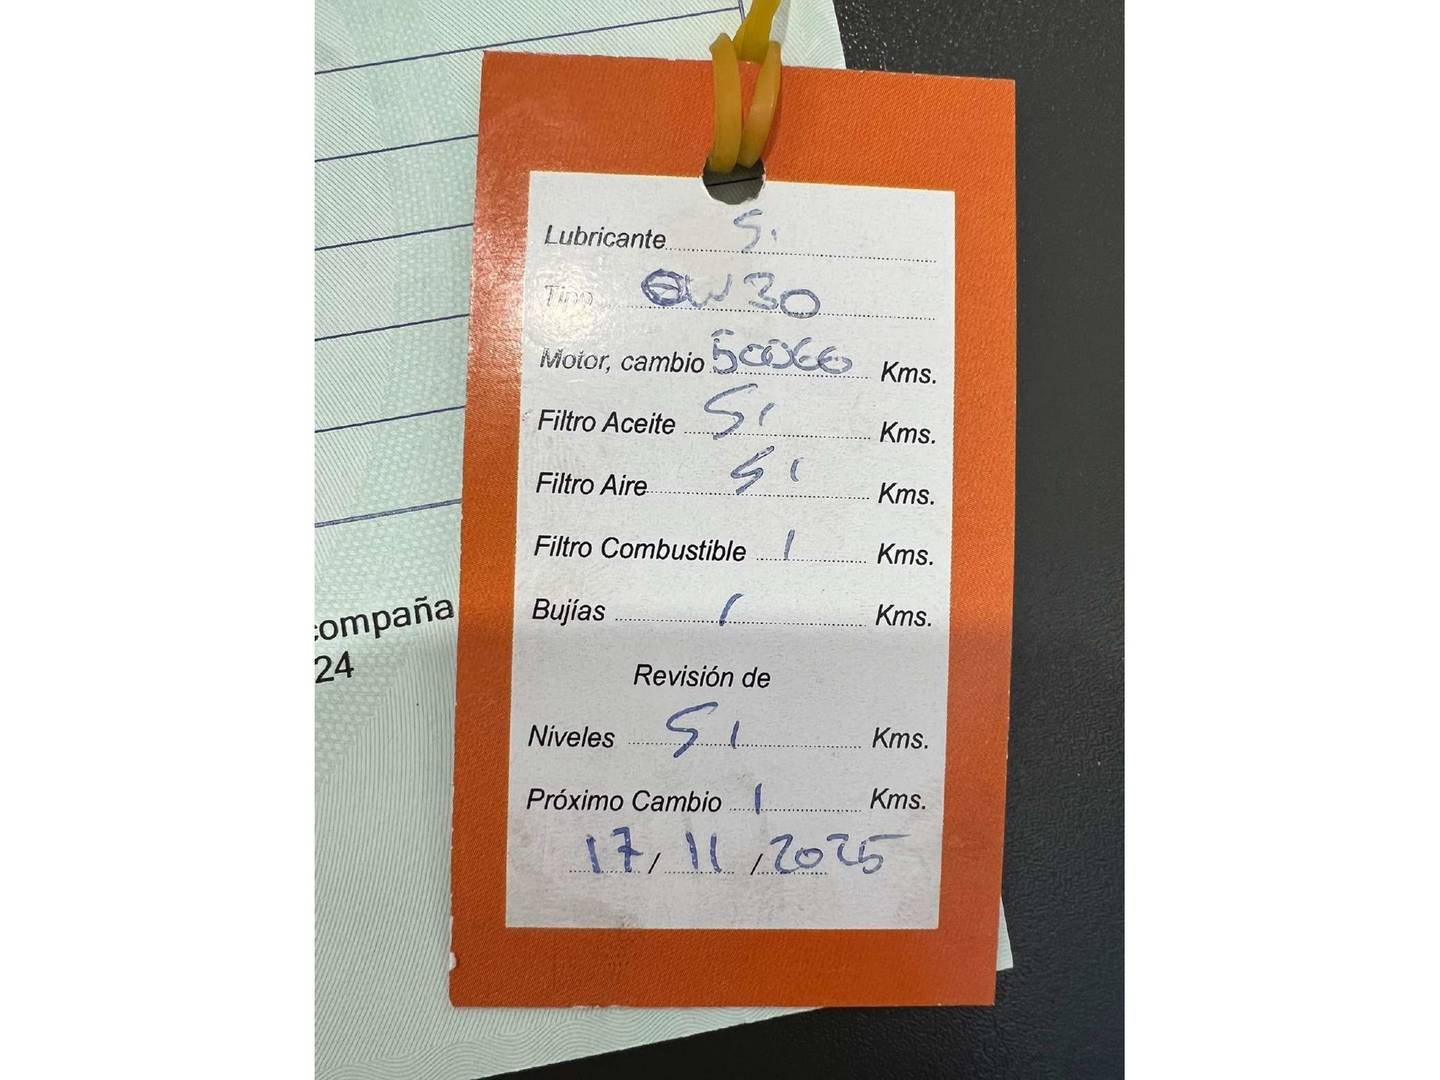 Lubricante Si
Tipo 0W30
Motor, cambio 50066 Kms.
Filtro Aceite Si Kms.
Filtro Aire Si Kms.
Filtro Combustible / Kms.
Bujías / Kms.
Revisión de
Niveles Si Kms.
Próximo Cambio / Kms.
17/11/2025
compaña
24